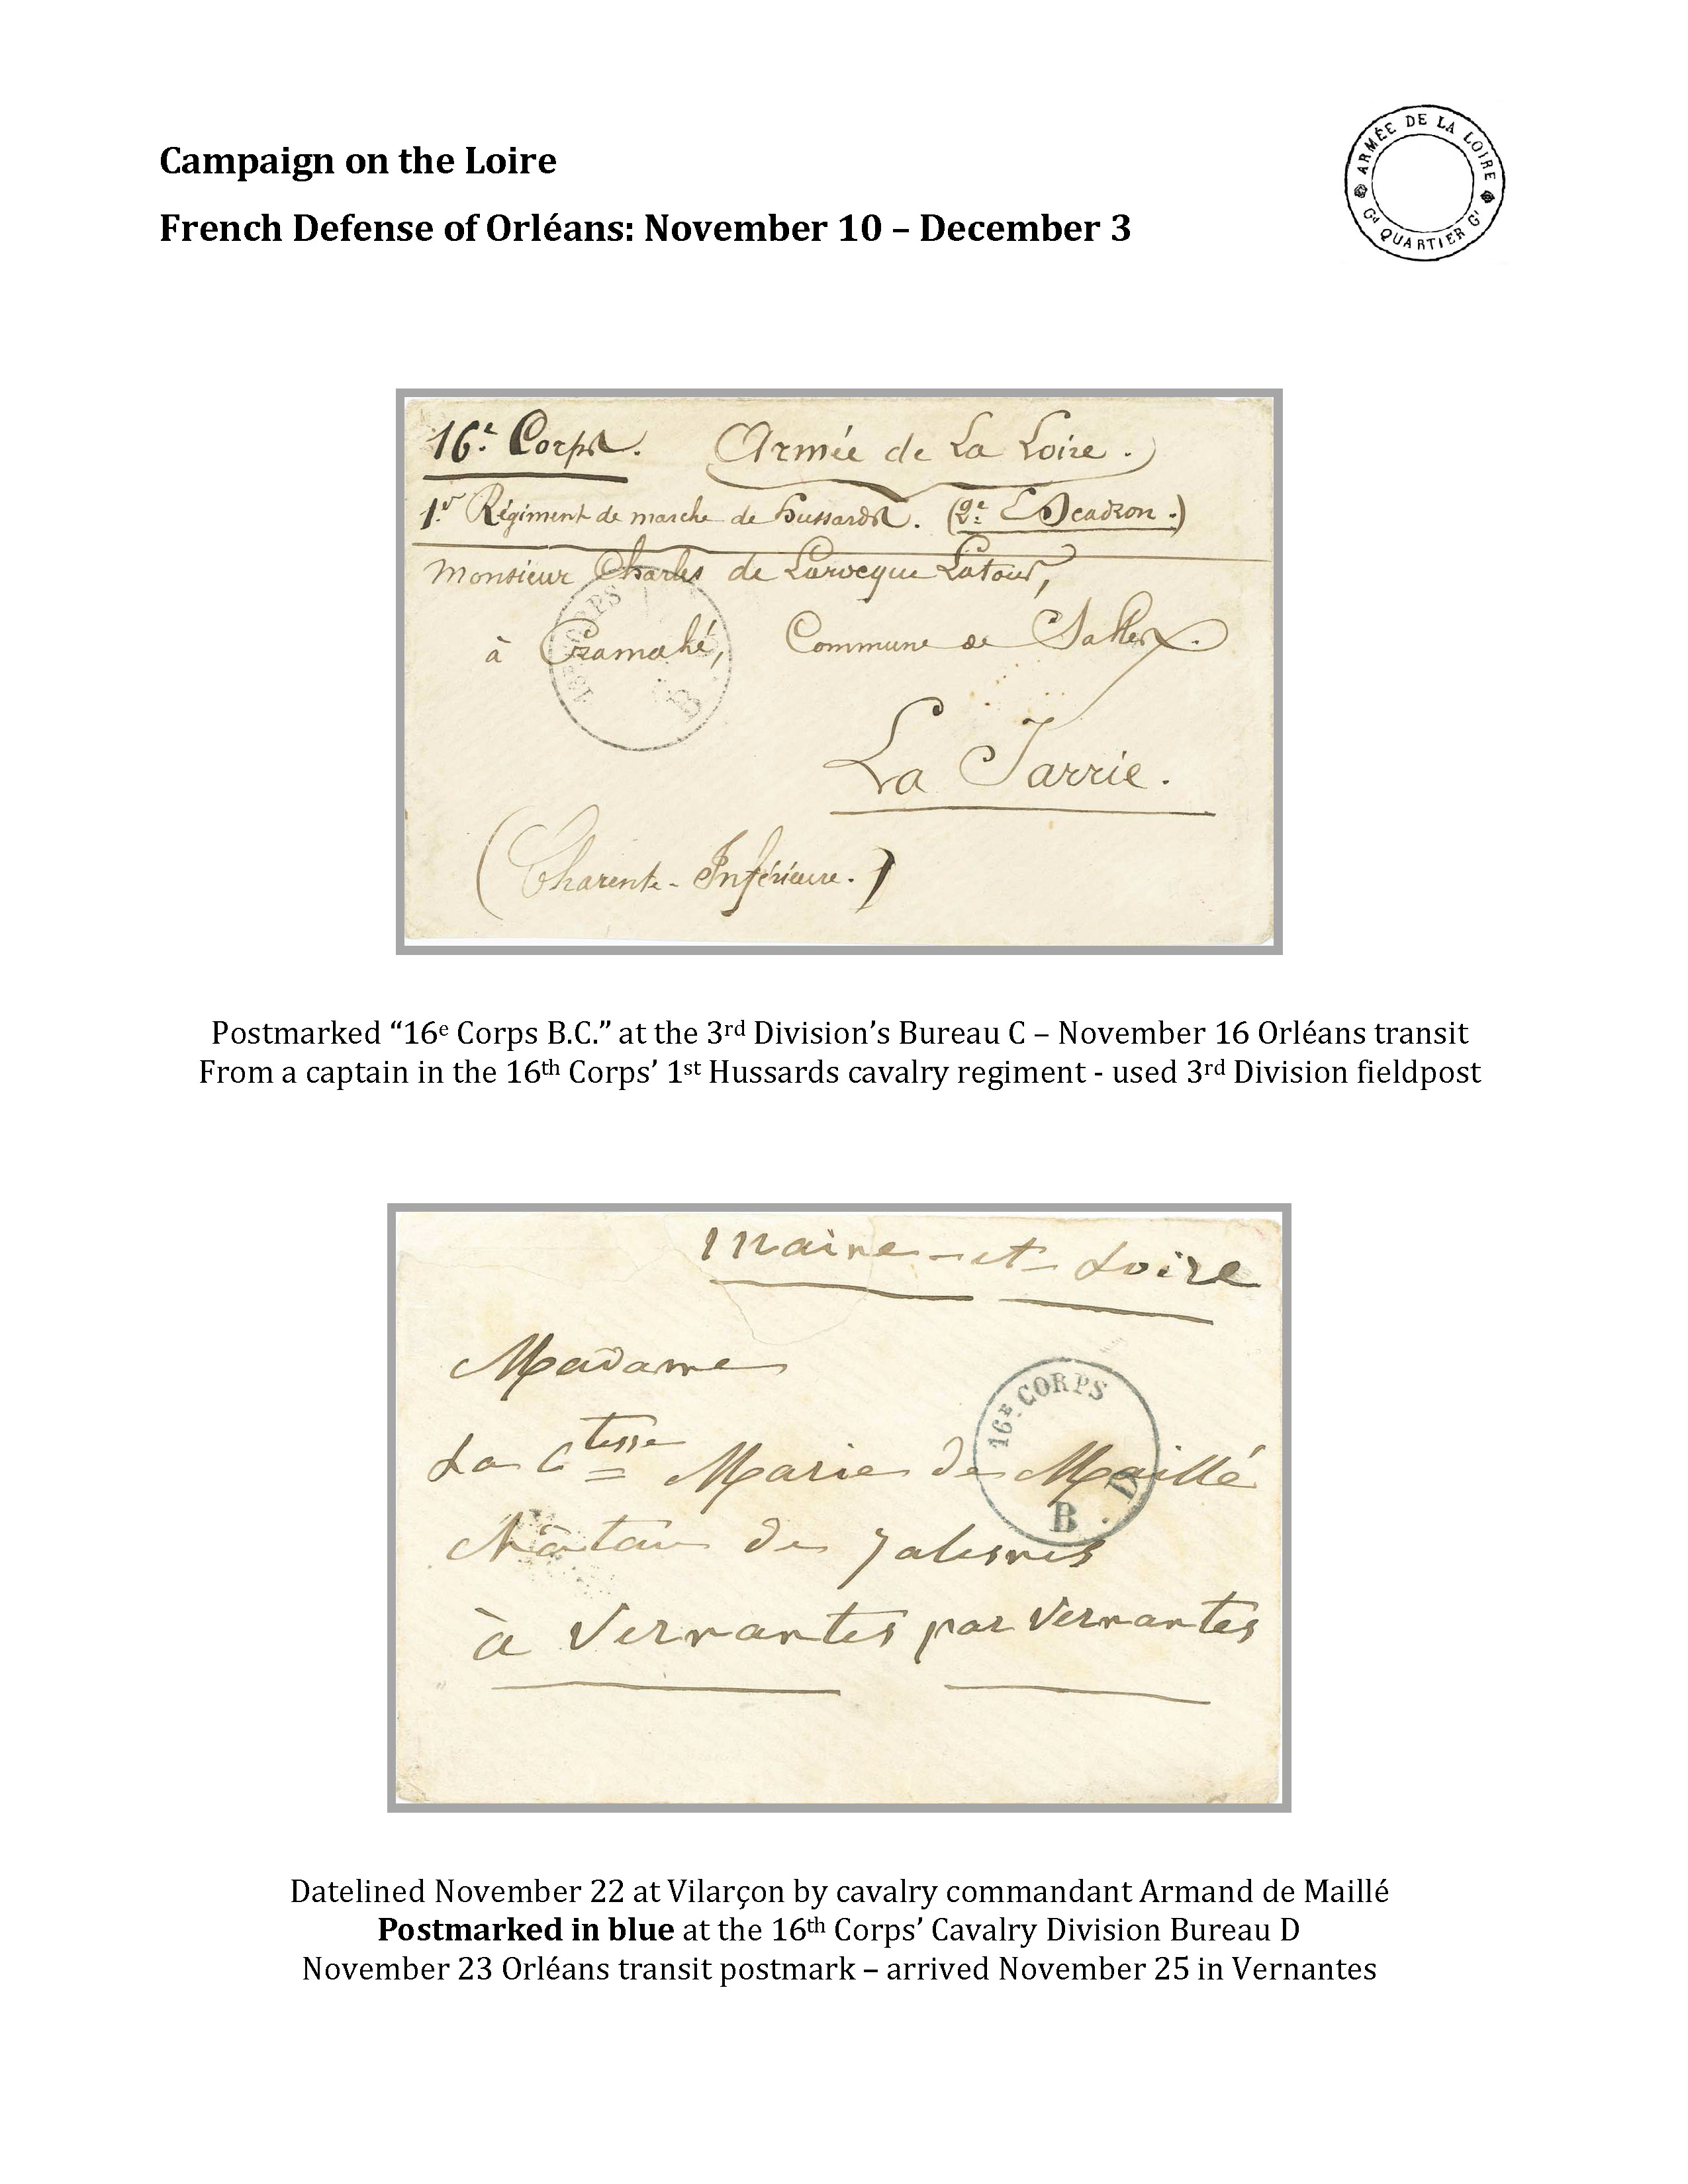 Campaign on the Loire
ARMÉE DE LA LOIRE
Gd QUARTIER Gl
French Defense of Orléans: November 10 – December 3
16e Corps. Armée de La Loire.
1er Régiment de marche de hussards. (2e Escadron.)
Monsieur Charles de Larocque Latour,
16E CORPS
à Cramahé, Commune de Salles.
B
La Jarrie.
(Charente-Inférieure.)
Postmarked “16e Corps B.C.” at the 3rd Division’s Bureau C – November 16 Orléans transit
From a captain in the 16th Corps’ 1st Hussards cavalry regiment - used 3rd Division fieldpost
Maine-et-Loire
Madame
16E CORPS
La Ctesse Marie de Maillé
B . D
Château de Jalesnes
à Vernantes par Vernantes
Datelined November 22 at Vilarçon by cavalry commandant Armand de Maillé
Postmarked in blue at the 16th Corps’ Cavalry Division Bureau D
November 23 Orléans transit postmark – arrived November 25 in Vernantes